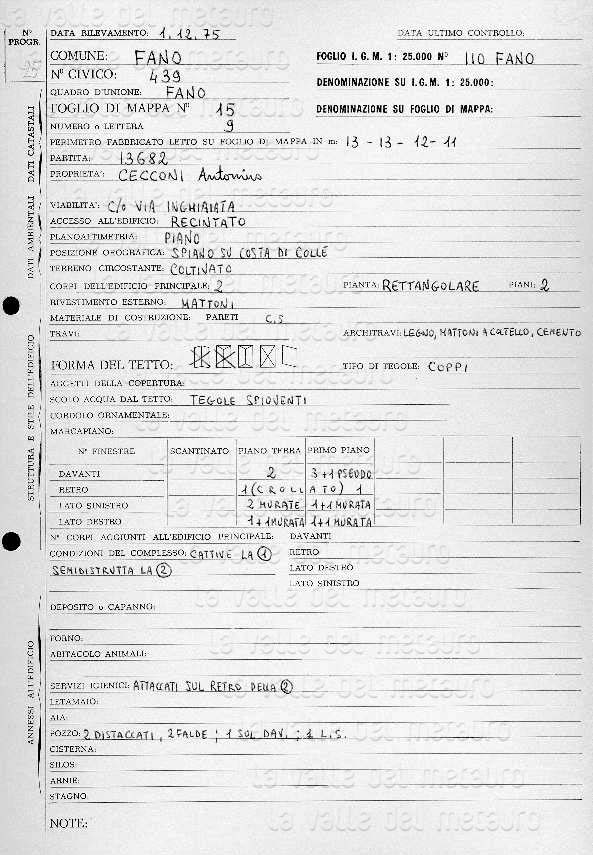 N° DATA RILEVAMENTO: 1.12.75 DATA ULTIMO CONTROLLO:
PROGR.
COMUNE: FANO FOGLIO I.G.M. 1: 25.000 N° 110 FANO
N° CIVICO: 439 DENOMINAZIONE SU I.G.M. 1: 25.000:
QUADRO D'UNIONE: FANO
FOGLIO DI MAPPA N° 15 DENOMINAZIONE SU FOGLIO DI MAPPA:
NUMERO o LETTERA 9
PERIMETRO FABBRICATO LETTO SU FOGLIO DI MAPPA IN m: 13 - 13 - 12 - 11
PARTITA: 13682
PROPRIETA': CECCONI Antonino
DATI AMBIENTALI DATI CATASTALI
VIABILITA': C/O VIA INGHIAIATA
ACCESSO ALL'EDIFICIO: RECINTATO
PLANOALTIMETRIA: PIANO
POSIZIONE OROGRAFICA: SPIANO SU COSTA DI COLLE
TERRENO CIRCOSTANTE: COLTIVATO
CORPI DELL'EDIFICIO PRINCIPALE: 2 PIANTA: RETTANGOLARE PIANI: 2
RIVESTIMENTO ESTERNO: MATTONI
MATERIALE DI COSTRUZIONE: PARETI C.S
TRAVI: ARCHITRAVI: LEGNO, MATTONI A COLTELLO, CEMENTO
FORMA DEL TETTO: TIPO DI TEGOLE: COPPI
AGGETTI DELLA COPERTURA:
SCOLO ACQUA DAL TETTO: TEGOLE SPIOVENTI
CORDOLO ORNAMENTALE:
MARCAPIANO:
STRUTTURA E STILE DELL'EDIFICIO
N° FINESTRE SCANTINATO PIANO TERRA PRIMO PIANO
DAVANTI 2 3+1 PSEUDO
RETRO 1 (CROLLATO) 1
LATO SINISTRO 2 MURATE 1+1 MURATA
LATO DESTRO 1+1 MURATA 1+1 MURATA
N° CORPI AGGIUNTI ALL'EDIFICIO PRINCIPALE: DAVANTI
CONDIZIONI DEL COMPLESSO: CATTIVE LA 1 RETRO
SEMIDISTRUTTA LA 2 LATO DESTRO
LATO SINISTRO
DEPOSITO o CAPANNO:
FORNO:
ABITACOLO ANIMALI:
ANNESSI ALL'EDIFICIO
SERVIZI IGIENICI: ATTACCATI SUL RETRO DELLA 2
LETAMAIO:
AIA:
POZZO: 2 DISTACCATI, 2 FALDE ; 1 SUL DAV. ; 1 L.S.
CISTERNA:
SILOS:
ARNIE:
STAGNO:
NOTE:
la valle del metauro